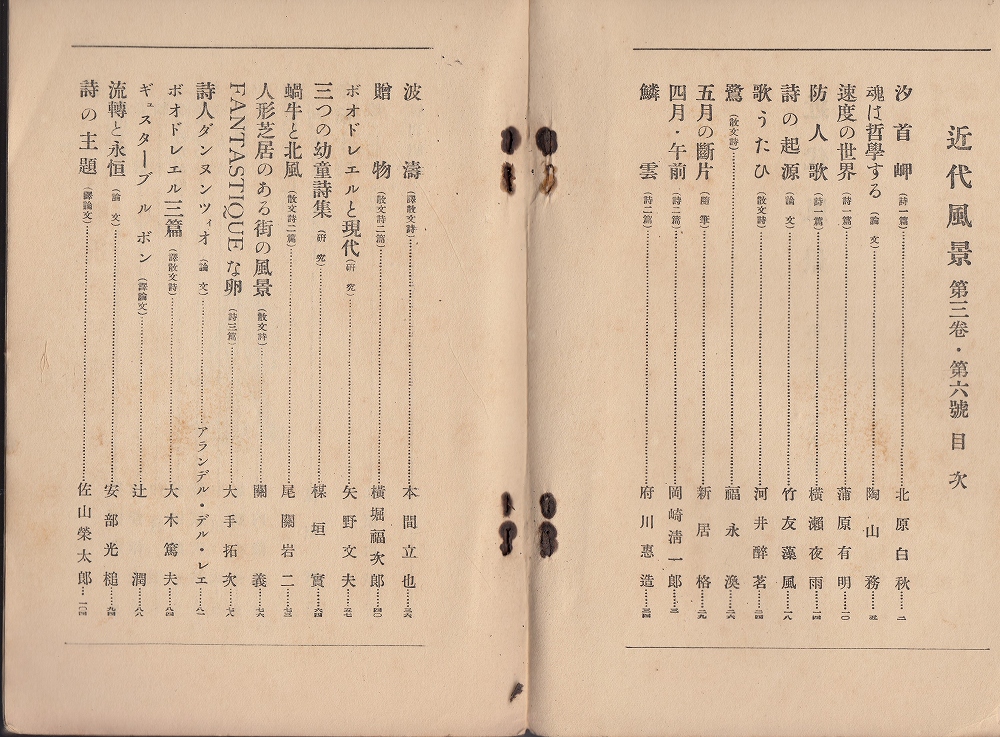 近代風景 第三卷・第六號 目次
汐首岬（詩一篇）………北原白秋……二
魂は哲學する（論文）………陶山務……五
速度の世界（詩一篇）………蒲原有明……一〇
防人歌（詩一篇）………横瀬夜雨……一四
詩の起源（論文）………竹友藻風……一八
歌うたひ（散文詩）………河井醉茗……二四
鷺（散文詩）………福永渙……二六
五月の斷片（隨筆）………新居格……二九
四月・午前（詩二篇）………岡崎淸一郎……三二
鱗雲（詩二篇）………府川惠造……三四
波濤（譯散文詩）………本間立也……三六
贈物（散文詩二篇）………横堀福次郎……四〇
ボオドレエルと現代（研究）………矢野文夫……五七
三つの幼童詩集（研究）………楳垣實……六四
蝸牛と北風（散文詩二篇）………尾關岩二……七三
人形芝居のある街の風景（散文詩）………關義……七六
FANTASTIQUEな卵（詩三篇）………大手拓次……七八
詩人ダンヌンツィオ（論文）………アランデル・デル・レエ……八一
ボオドレエル三篇（譯散文詩）………大木篤夫……八四
ギュスターブ ルボン（譯論文）………辻潤……八八
流轉と永恒（論文）………安部光槌……九四
詩の主題（譯論文）………佐山榮太郎……一〇四